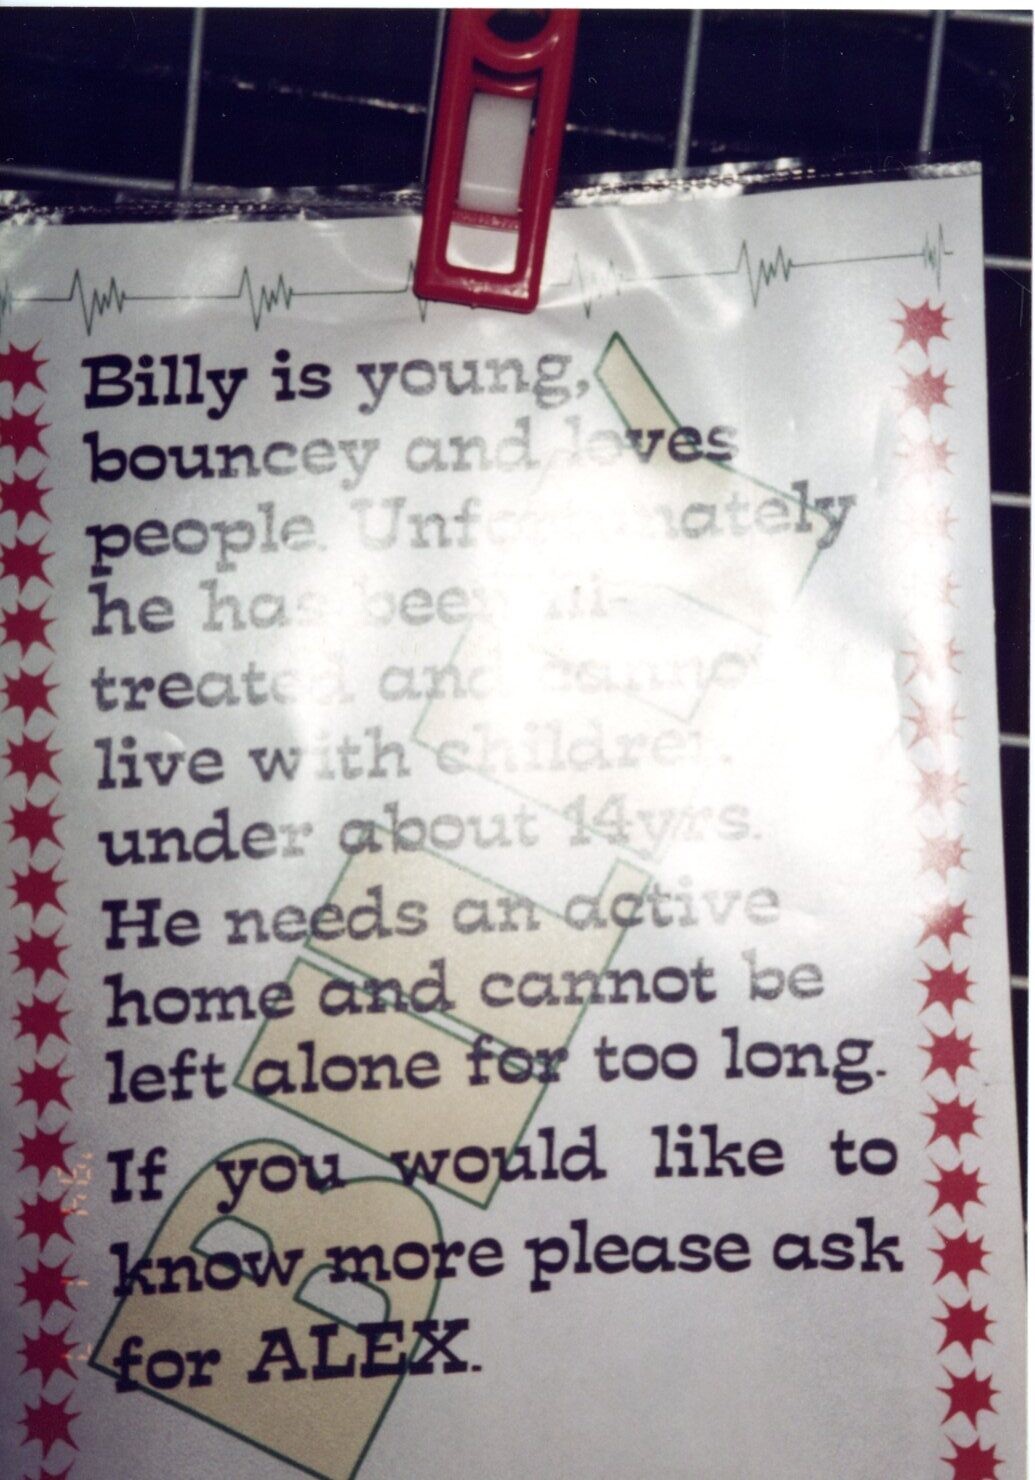 Billy is young,
bouncey and loves
people. Unfortunately
he has been ill-
treated and cannot
live with children
under about 14yrs.
He needs an active
home and cannot be
left alone for too long.
If you would like to
know more please ask
for ALEX.
BILLY